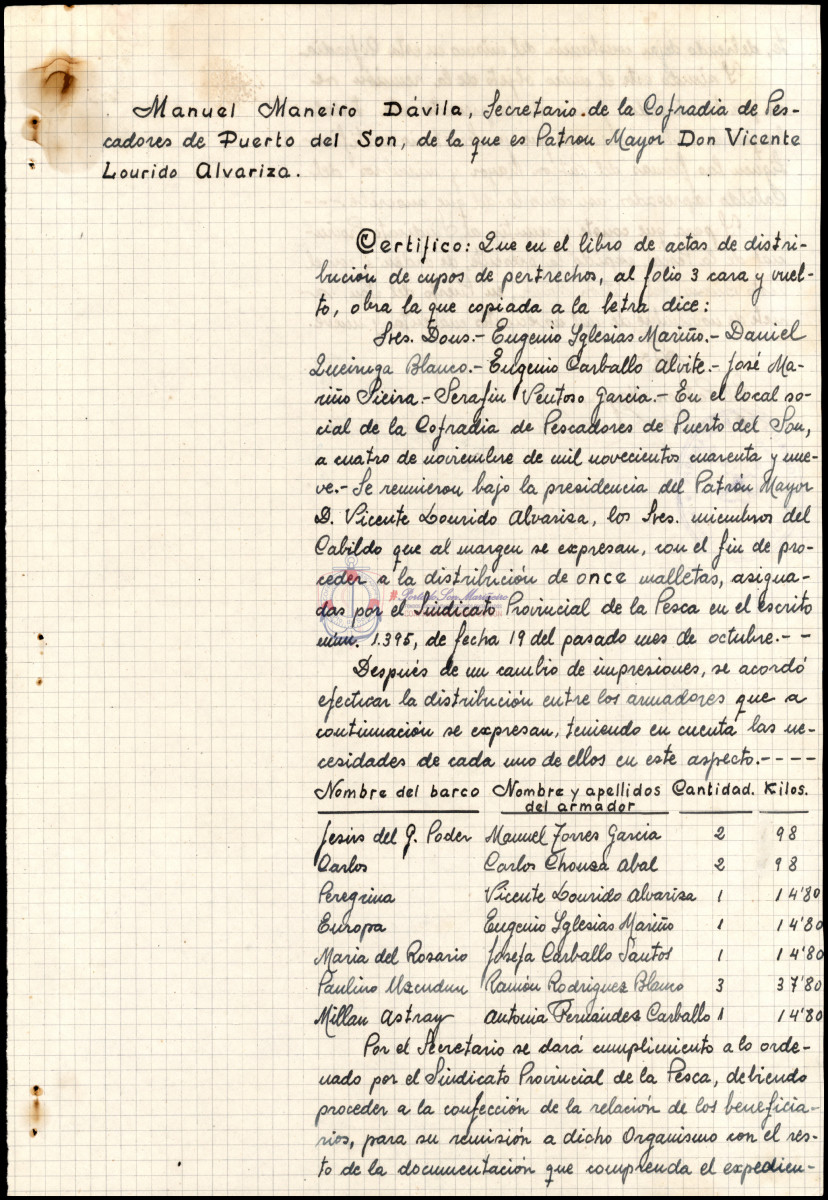 Manuel Maneiro Dávila, Secretario de la Cofradia de Pes-
cadores de Puerto del Son, de la que es Patron Mayor Don Vicente
Lourido Alvariza.
Certifico: Que en el libro de actas de distri-
bución de cupos de pertrechos, al folio 3 cara y vuel-
to, obra la que copiada a la letra dice:
Sres. Dons.- Eugenio Yglesias Mariño.- Daniel
Queiruga Blanco.- Eugenio Carballo Alvite.- José Ma-
riño Sieira.- Serafin Ventoso Garcia.- En el local so-
cial de la Cofradia de Pescadores de Puerto del Son,
a cuatro de noviembre de mil novecientos cuarenta y nue-
ve.- Se reunieron bajo la presidencia del Patrón Mayor
D. Vicente Lourido Alvarisa, los Sres. miembros del
Cabildo que al margen se expresan, con el fin de pro-
ceder a la distribución de once malletas, asigna-
das por el Sindicato Provincial de la Pesca en el escrito
núm. 1.395, de fecha 19 del pasado mes de octubre.- -
Después de un cambio de impresiones, se acordó
efectuar la distribución entre los armadores que a
continuación se expresan, teniendo en cuenta las ne-
cesidades de cada uno de ellos en este aspecto.- - - -
Nombre del barco Nombre y apellidos del armador Cantidad. Kilos.
Jesús del G. Poder Manuel Torres Garcia 2 98
Carlos Carlos Chouza Abal 2 98
Peregrina Vicente Lourido Alvarisa 1 14'80
Europa Eugenio Yglesias Mariño 1 14'80
Maria del Rosario Josefa Carballo Santos 1 14'80
Paulino Uzcudun Ramón Rodriguez Blanco 3 37'80
Millan Astray Antonia Fernández Carballo 1 14'80
Por el Secretario se dará cumplimiento a lo orde-
nado por el Sindicato Provincial de la Pesca, debiendo
proceder a la confección de la relación de los beneficia-
rios, para su remisión a dicho Organismo con el res-
to de la documentación que comprenda el expedien-